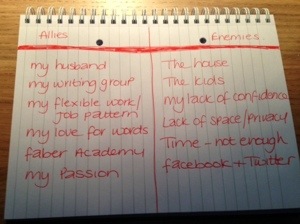 Allies
my husband
my writing group
my flexible work/
job pattern
my love for words
faber Academy
my Passion
Enemies
The house
The kids
my lack of confidence
Lack of space/Privacy
Time - not enough
facebook + Twitter